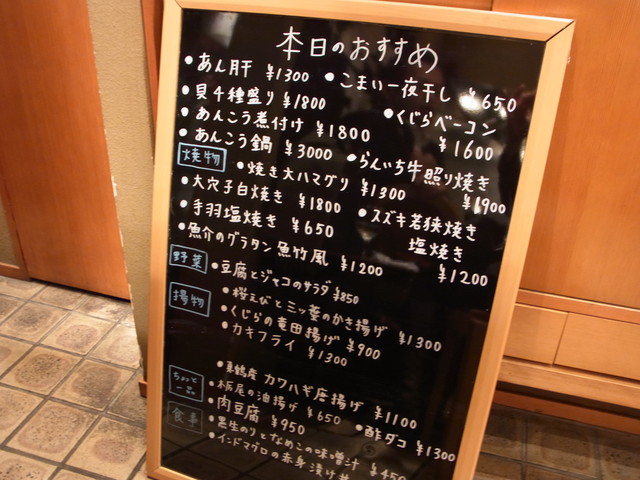 本日のおすすめ
・あん肝 ¥1300 ・こまい一夜干し ¥650
・貝4種盛り ¥1800 ・くじらベーコン ¥1600
・あんこう煮付け ¥1800
・あんこう鍋 ¥3000 ・らんいち牛照り焼き ¥1900
焼物 ・焼き大ハマグリ ¥1300
・大穴子白焼き ¥1800 ・スズキ若狭焼き
・手羽塩焼き ¥650 塩焼き ¥1200
・魚介のグラタン魚竹風 ¥1200
野菜 ・豆腐とジャコのサラダ ¥850
揚物 ・桜えびと三ッ葉のかき揚げ ¥1300
・くじらの竜田揚げ ¥900
・カキフライ ¥1300
・真鶴産 カワハギ唐揚げ ¥1100
ちょっと一品 ・栃尾の油揚げ ¥650 ・酢ダコ ¥1300
・肉豆腐 ¥950
食事 ・黒生のりとなめこの味噌汁 ¥450
・インドマグロの赤身漬け